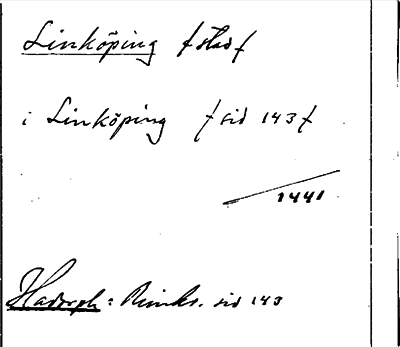 Linköping /stad/
i Linköping / sid 143 /
1441
Hadorph: Rimkr. sid 143